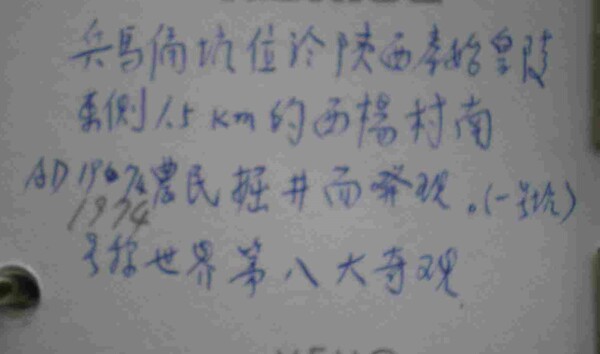 兵馬俑坑位於陝西秦始皇陵
東側1.5 km的西楊村南
AD 1974農民掘井而發現。(一号坑)
1974
号称世界第八大奇观